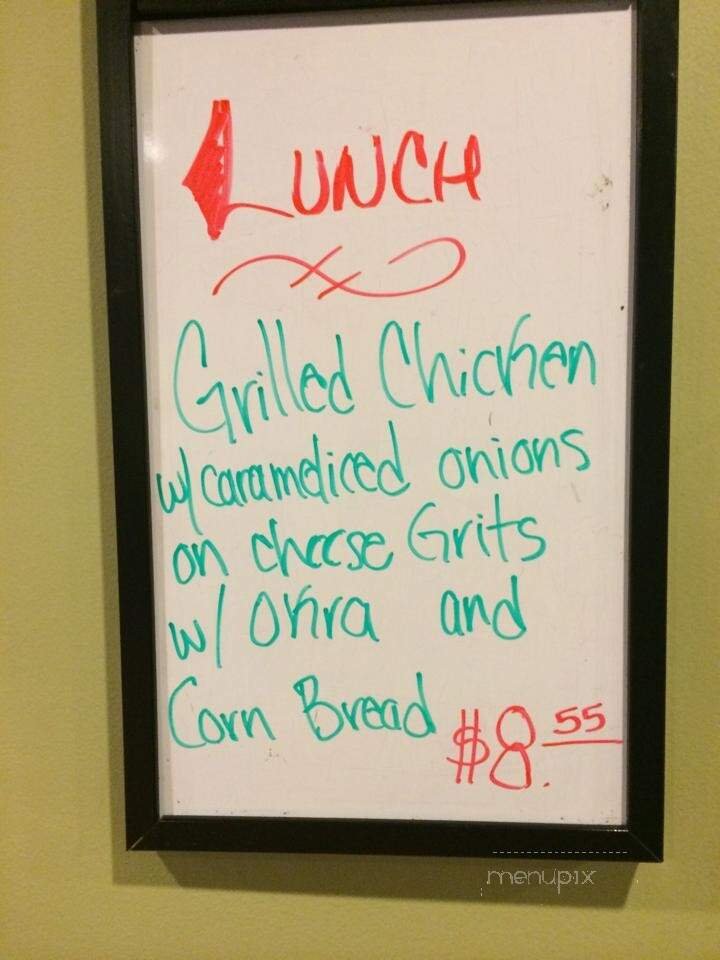 LUNCH
Grilled Chicken
w/ carameliced onions
on cheese Grits
w/ Okra and
Corn Bread
$8.55
menupix